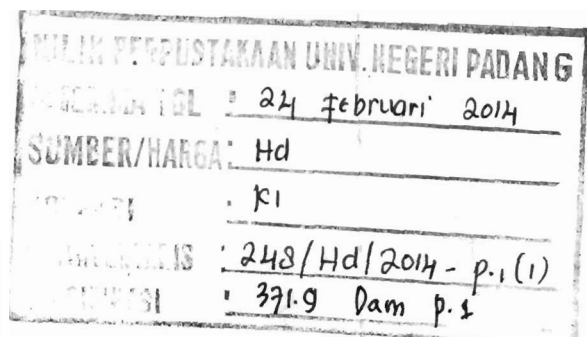 MILIK PERPUSTAKAAN UNIV. NEGERI PADANG
TGL : 24 Februari 2014
SUMBER/HARGA : Hd
: KI
: 248/Hd/2014 - p.1 (1)
: 371.9 Dam p.1